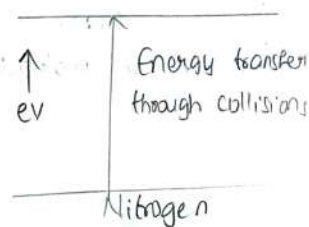 Energy transfer
ev
through collisions
Nitrogen